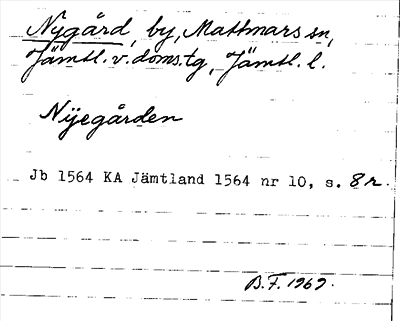 Nygård, by, Mattmars sn,
Jämtl. v. doms.tg, Jämtl. l.
Nijegården
Jb 1564 KA Jämtland 1564 nr 10, s. 8 r.
B.F. 1969.